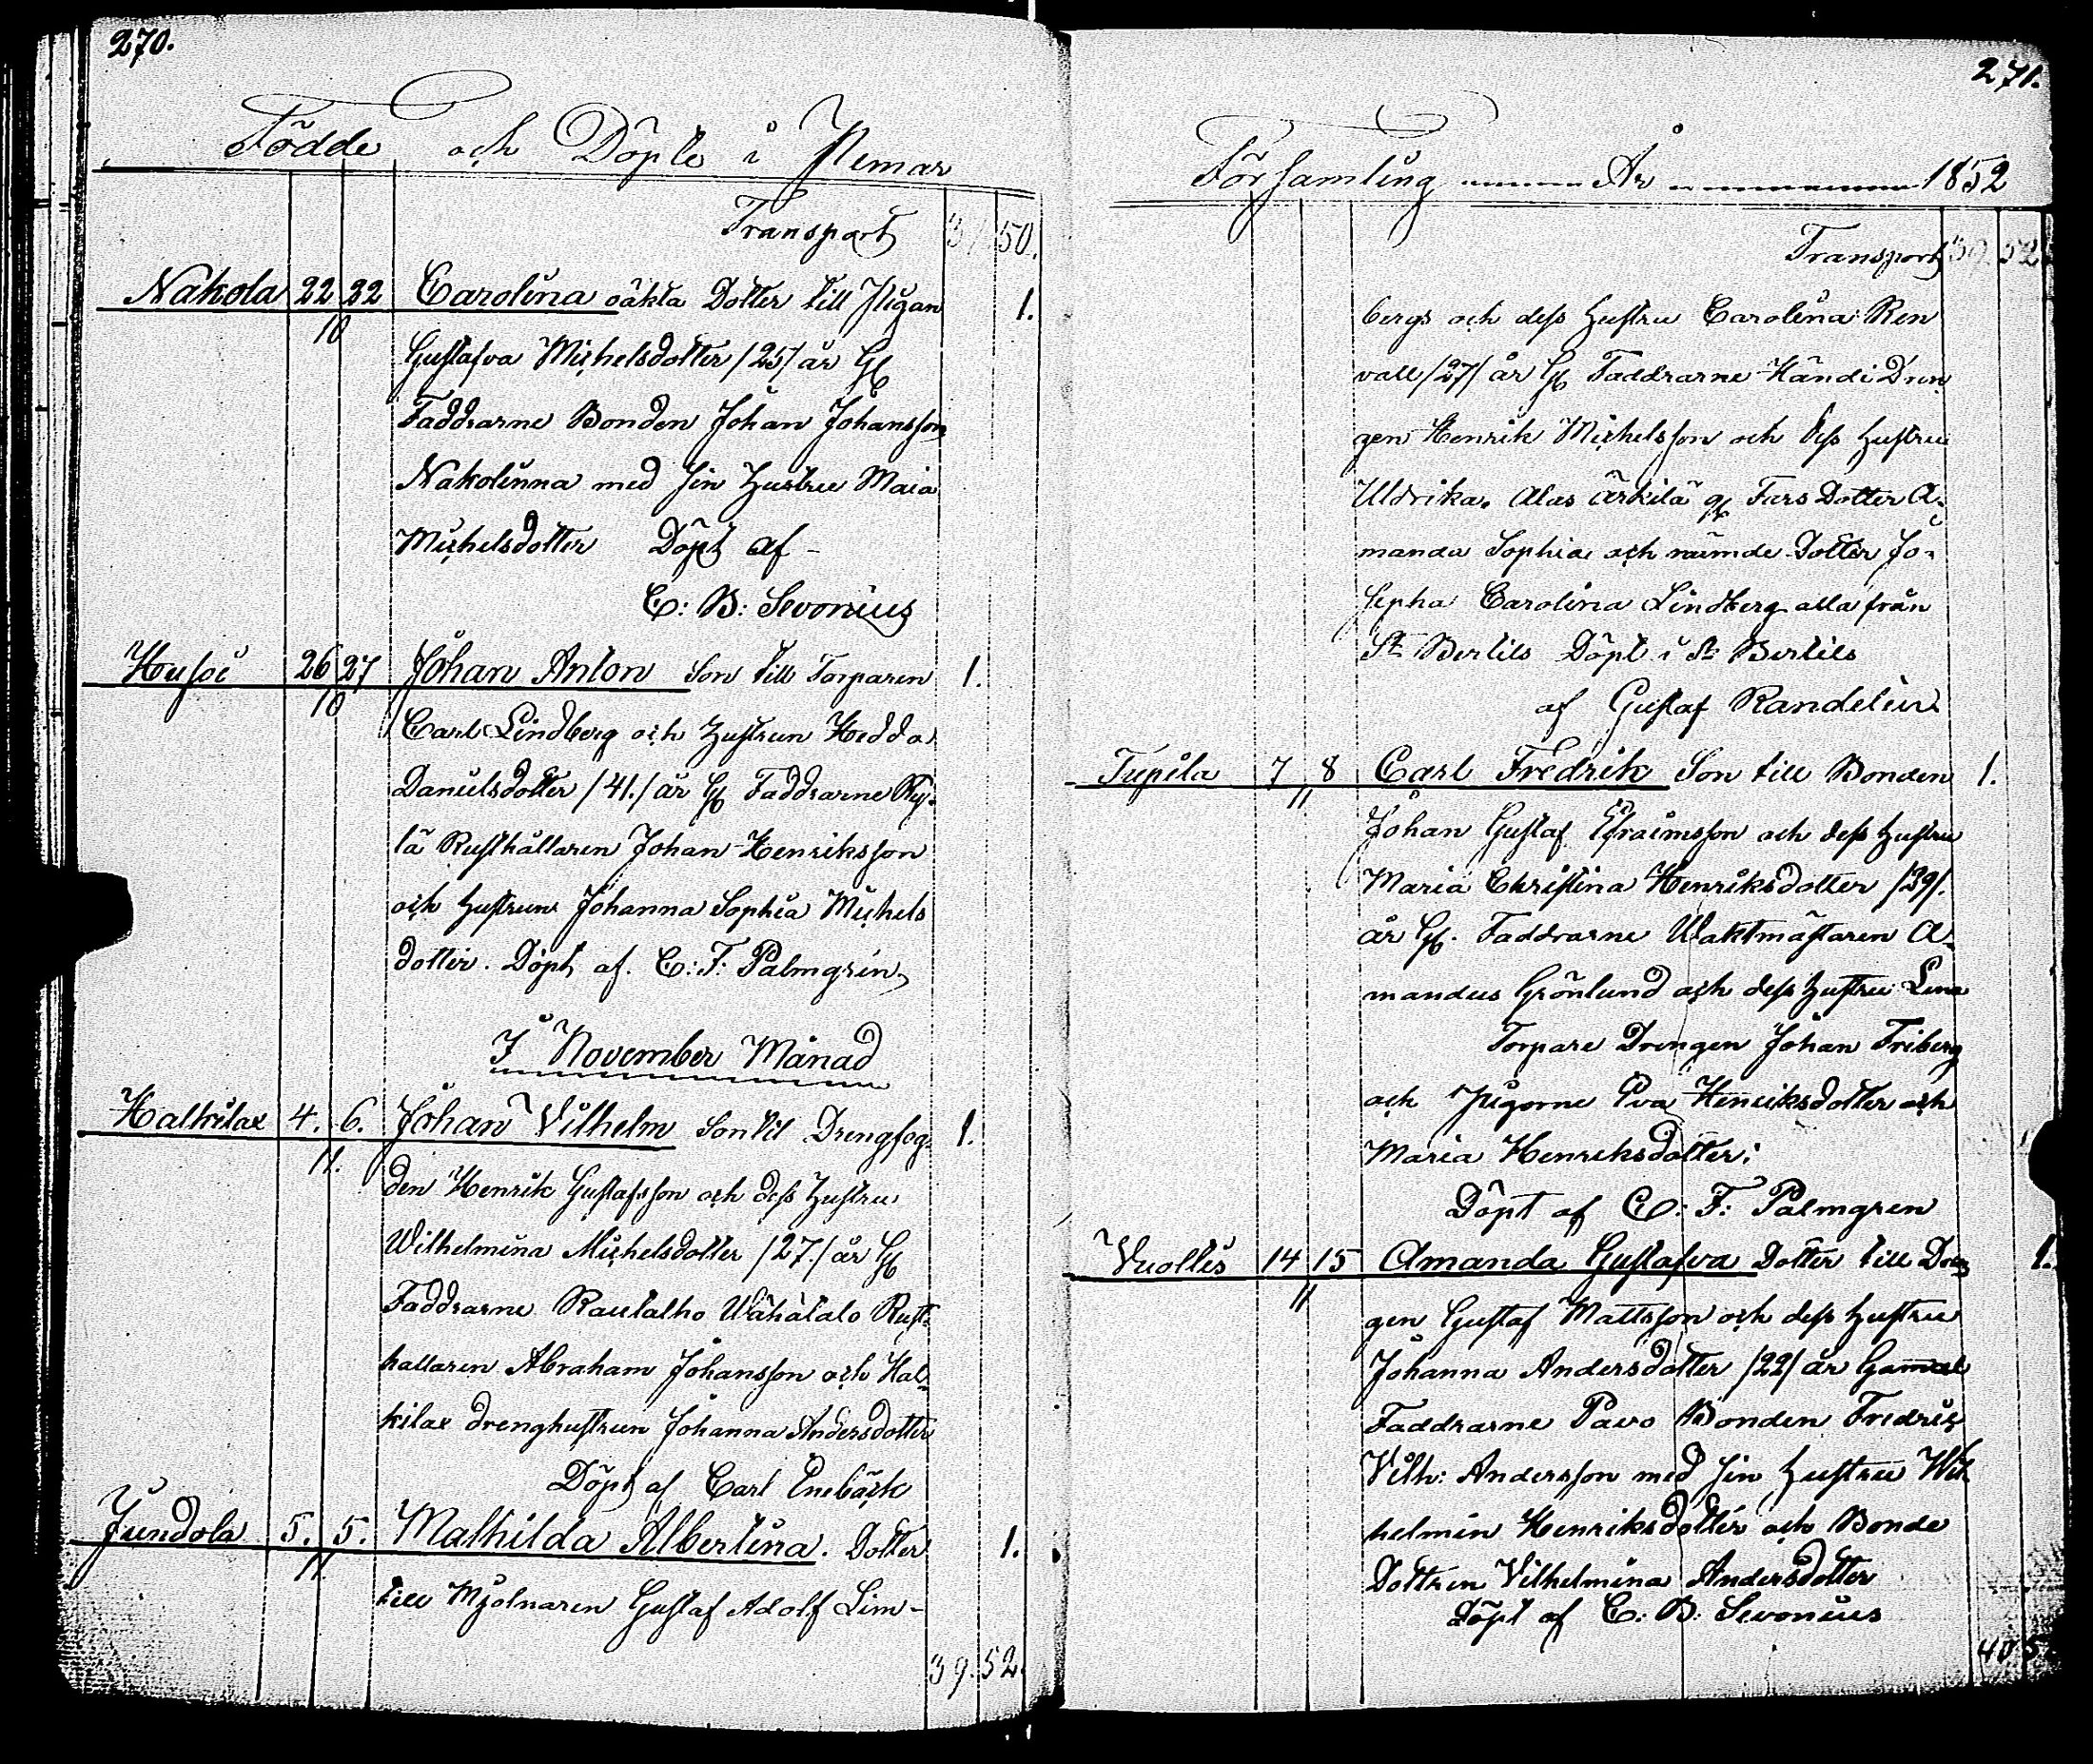 270.
Födde och Döpte i Pemar
Transport 37 50.
Nakola 22 22 Carolina oäkta Dotter till Pigan 1.
10
Gustafva Michelsdotter /25/ år Gl
Faddrarne Bonden Johan Johansson
Nakolinna med sin Hustru Maia
Michelsdotter Döpt af
C: B: Sevonius
26 27 Johan Anton Son till Torparen 1.
10
Carl Lindberg och Hustrun Hedda
Danielsdotter /41./ år Gl Faddrarne Ky-
lä Rusthållaren Johan Henriksson
och Hustrun Johanna Sophia Michels
dotter. Döpt af. C: F: Palmgren
I November Månad
Halkilax 4. 6. Johan Vilhelm Son til Drengfog- 1.
11.
den Henrik Gustafsson och dess Hustru
Wilhelmina Michelsdotter /27./ år Gl
Faddrarne Rautalho Wähätalo Rust-
hallaren Abraham Johansson och Hal-
kilax drenghustrun Johanna Andersdotter
Döpt af Carl Enebäck
Jundola 5. 5. Mathilda Albertina. Dotter 1.
11.
till Mjolnaren Gustaf Adolf Lim-
39. 52.
271.
Församling År 1852
Transport 39. 52
bergs och dess Hustru Carolina Ren
vall /27/ år Gl Faddrarne Händi Dren
gen Henrik Michelsson och dess Hustru
Uldrika. Alas Ärkilä Fars Dotter A-
manda Sophia och Dotter Jo-
sepha Carolina Lindberg alla från
St Bertils Döpt i St Bertils
af Gustaf Randelin
Tupila 7 8 Carl Fredrik Son till Bonden 1.
11
Johan Gustaf Efraimsson och dess Hustru
Maria Christina Henriksdotter /29/.
år Gl. Faddrarne Waktmästaren A-
mandus Grönlund och dess Hustru Lena
Torpare Drengen Johan Friberg
och Pigorne Eva Henriksdotter och
Maria Henriksdotter;
Döpt af C: F: Palmgren
Vuolles 14 15 Amanda Gustafva Dotter till Dren 1.
11
gen Gustaf Mattsson och dess Hustru
Johanna Andersdotter /22/ år Gammal
Faddrarne Pavo Bonden Fredric
Vilh: Andersson med sin Hustru Wil
helmin Henriksdotter och Bonde
Dottren Vilhelmina Andersdotter
Döpt af C: B: Sevonius
40 5